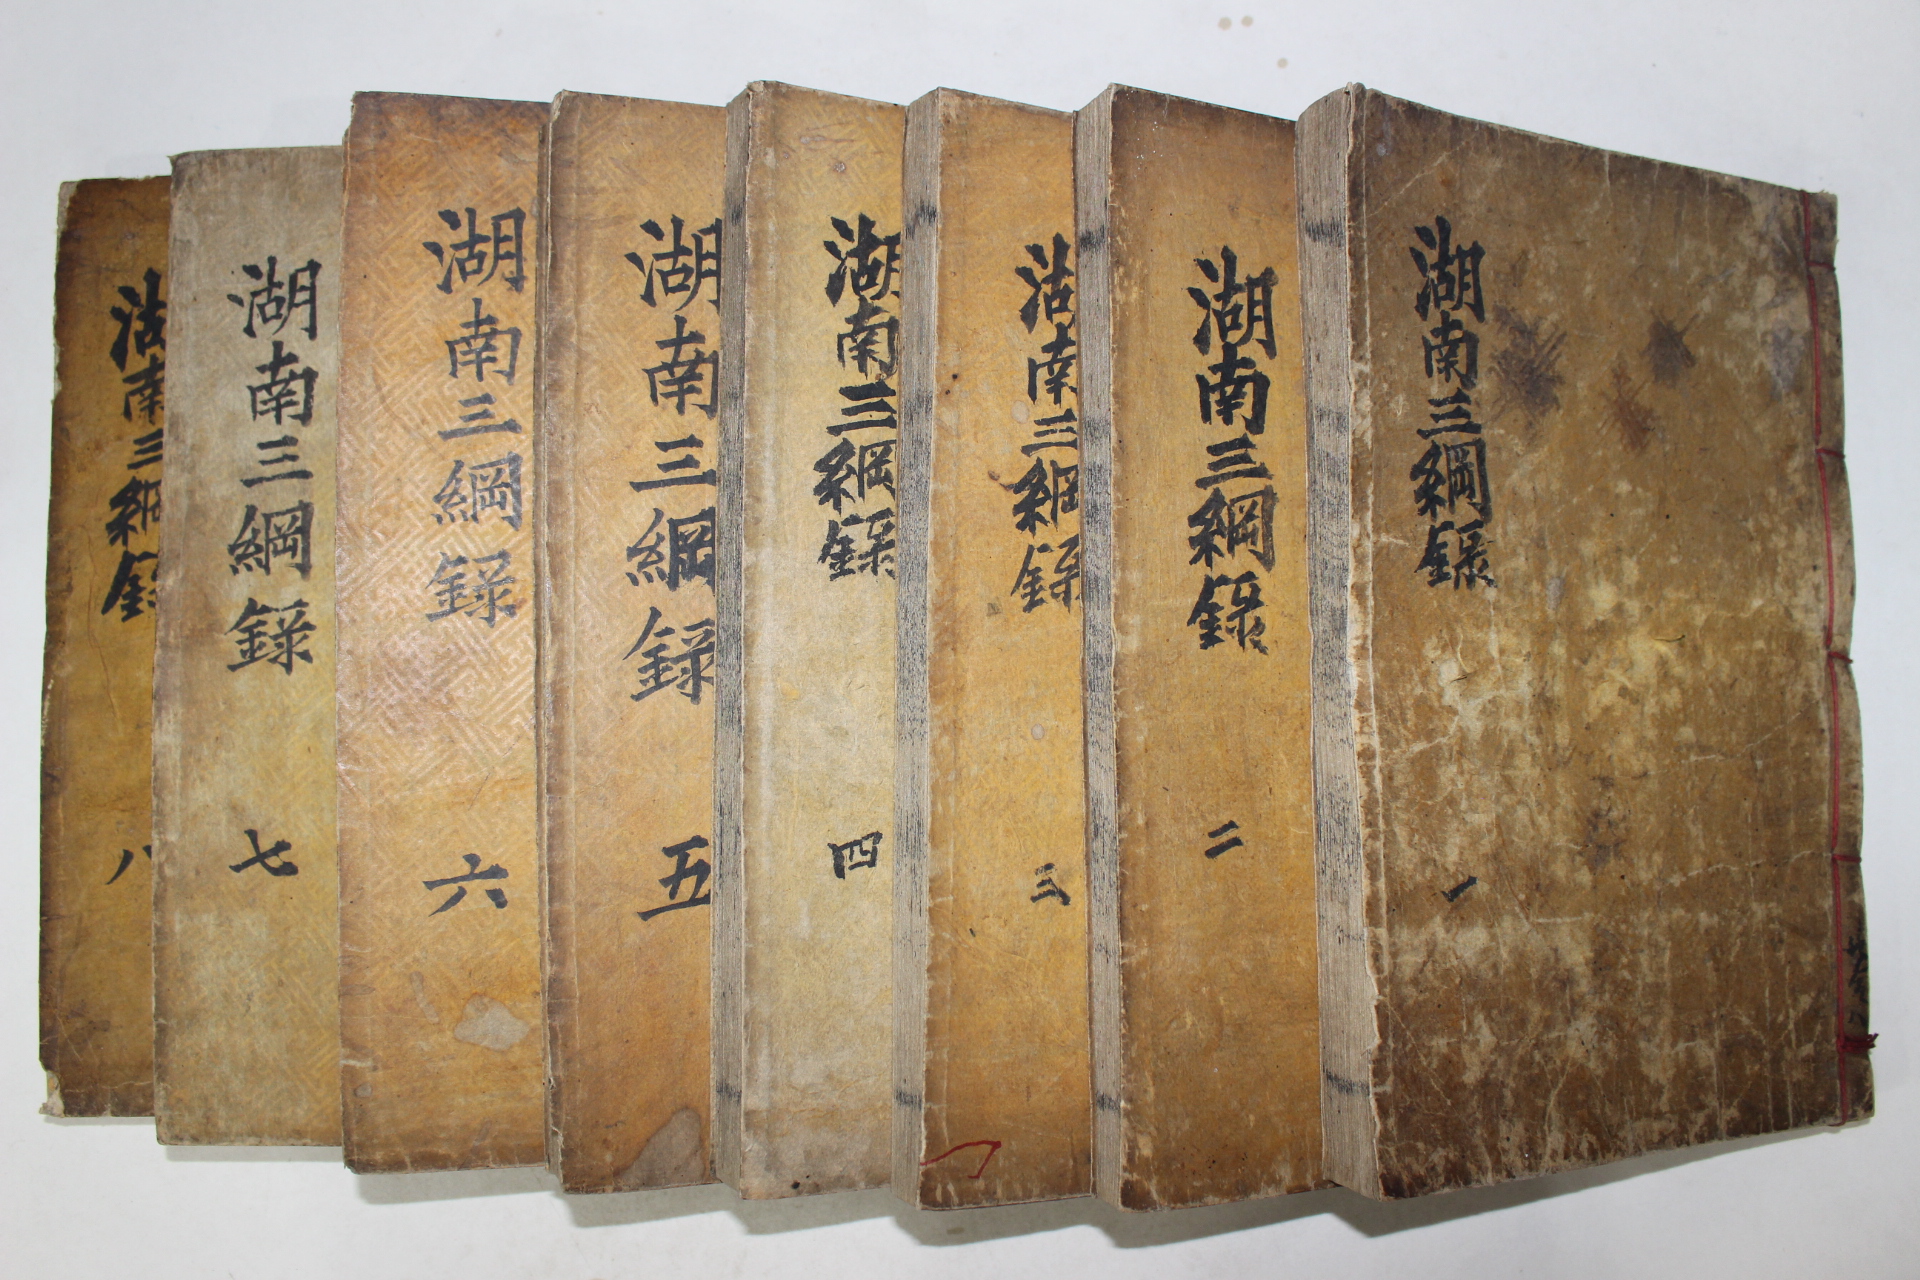 湖南三綱錄 一
湖南三綱錄 二
湖南三綱錄 三
湖南三綱錄 四
湖南三綱錄 五
湖南三綱錄 六
湖南三綱錄 七
湖南三綱錄 八